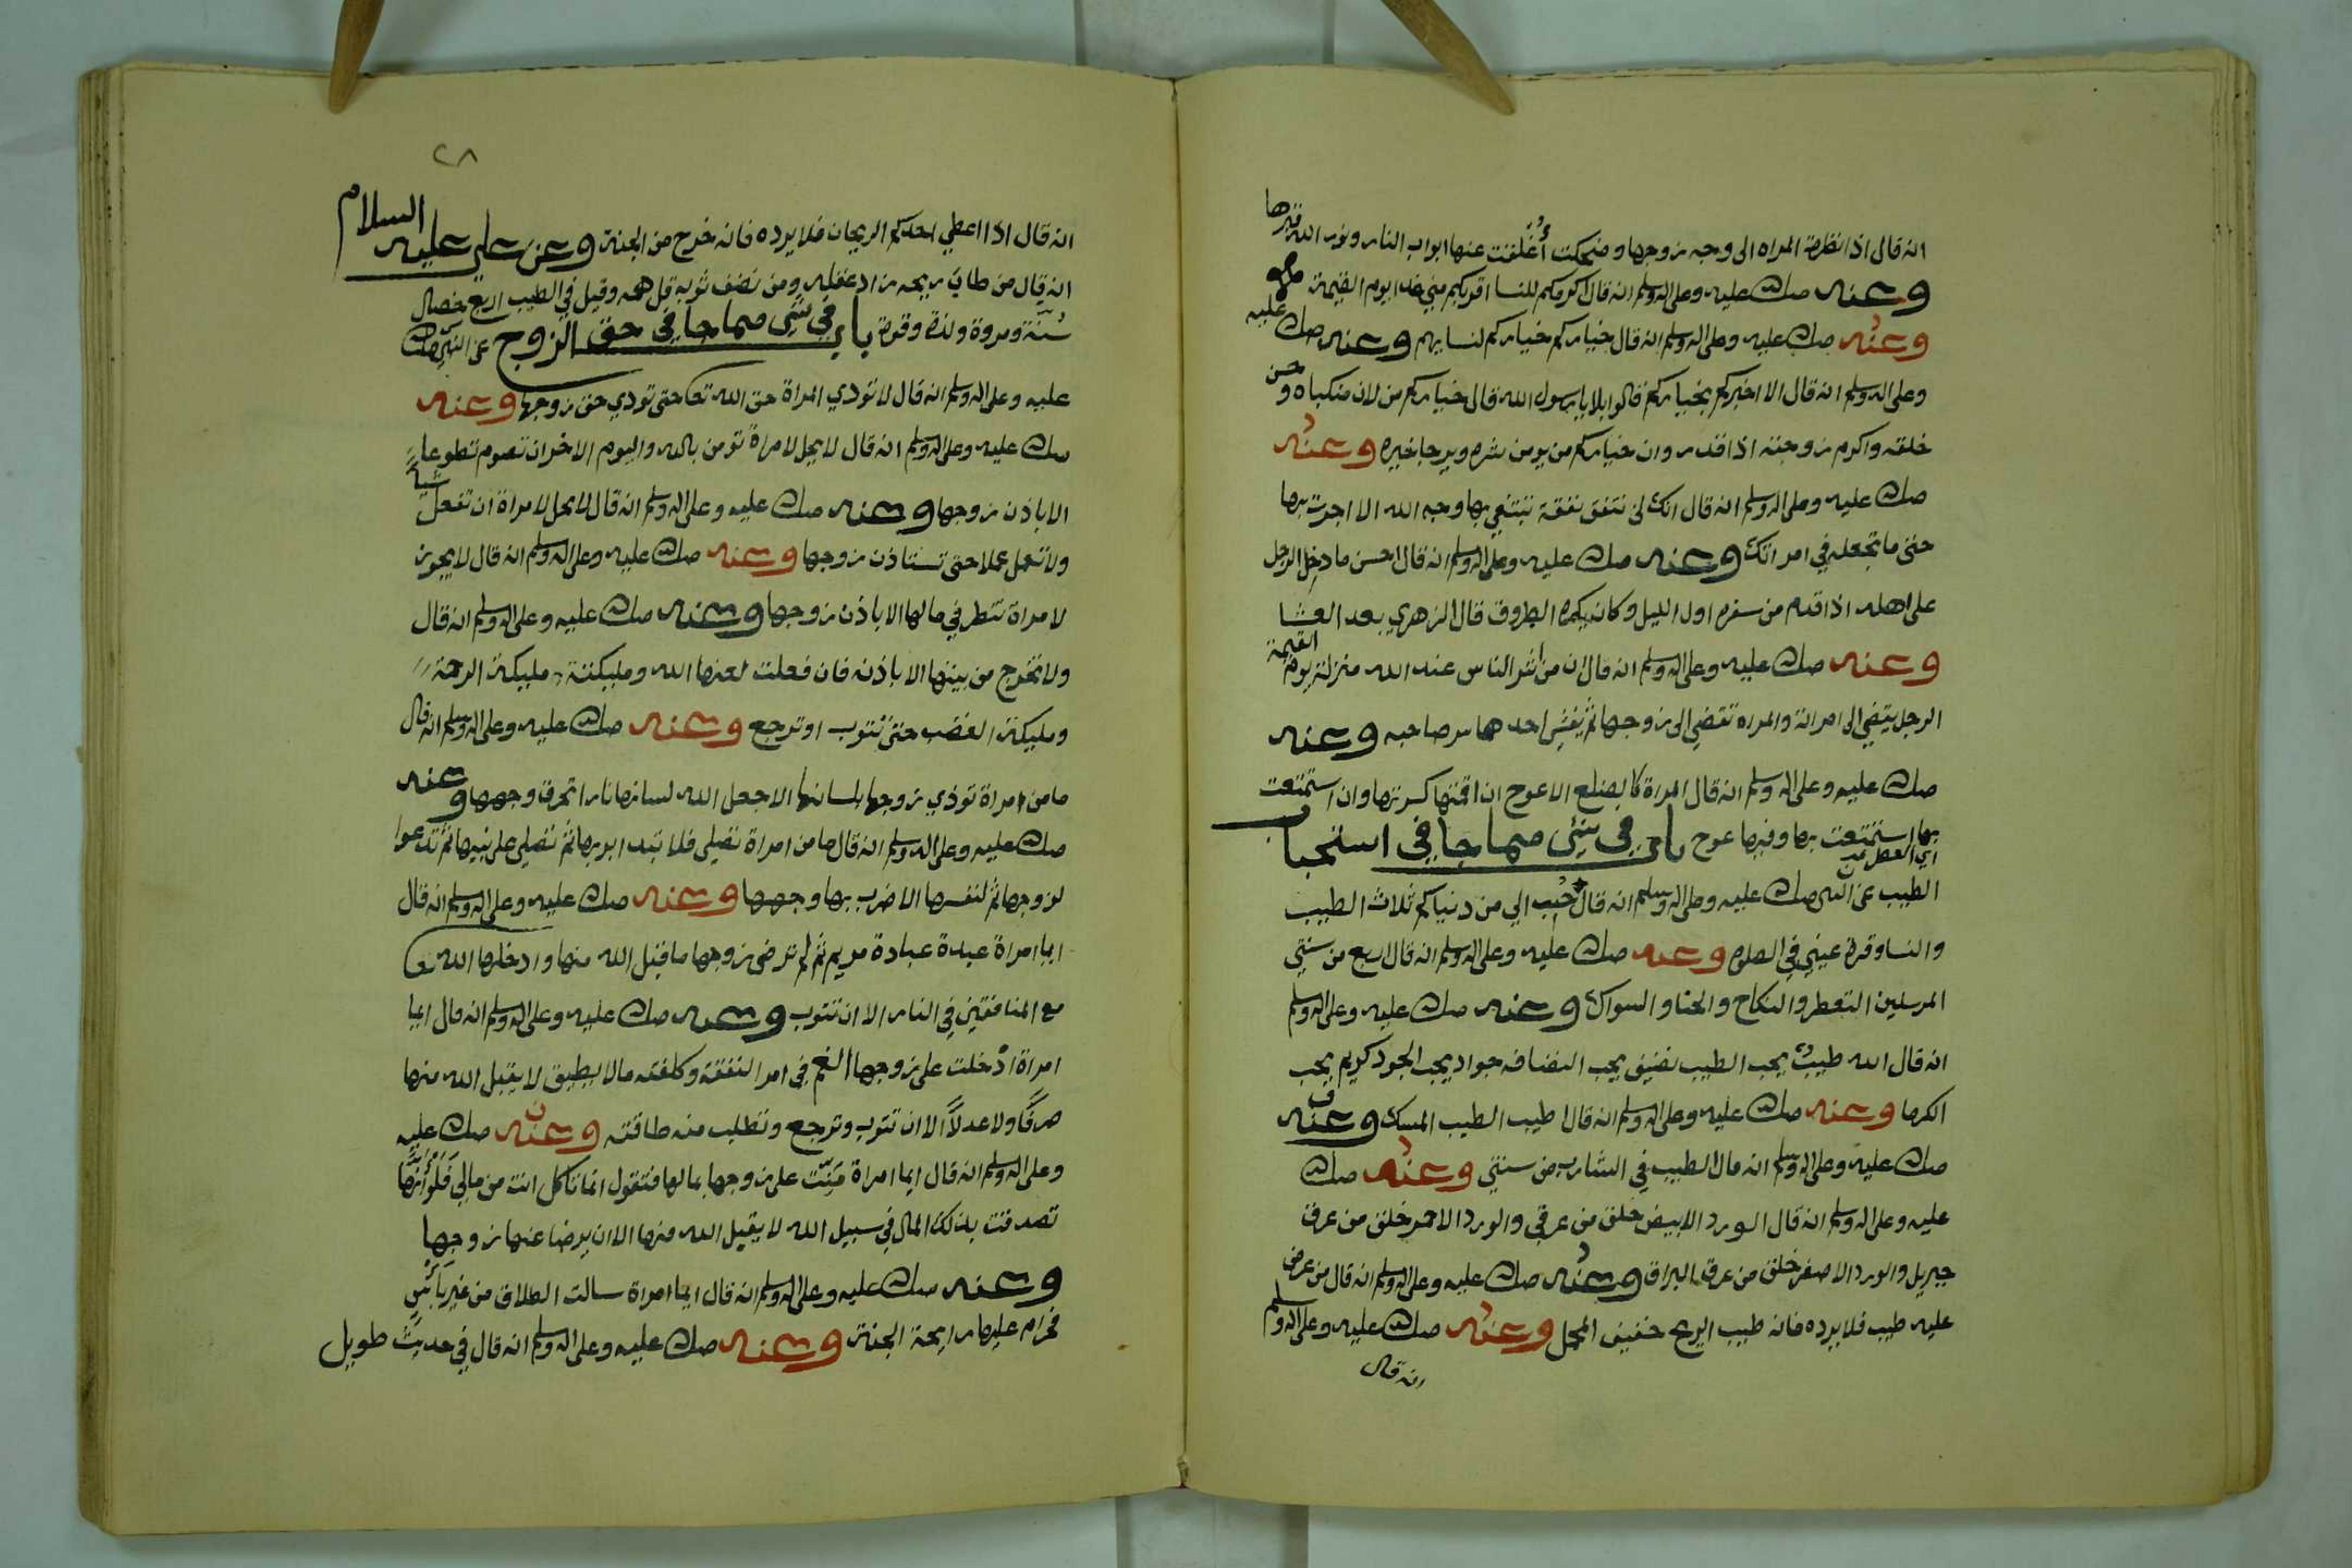 انه قال اذا نظرة المراه الى وجه زوجها وضحكت أُغلقت عنها ابواب النار ونور الله قبرها
وعنه صلى الله عليه وعلى اله وسلم انه قال اكرمكم للنسا اقربكم مني غدا يوم القيمة
وعنه صلى الله عليه وعلى اله وسلم انه قال خياركم خياركم لنسايهم وعنه صلى الله عليه
وعلى اله وسلم انه قال الا اخبركم بخياركم قالوا بلا يا رسول الله قال خياركم من لان منكباه وحسن
خلقه واكرم زوجته اذا قدر وان خياركم من يومن شره ويرجا خيره وعنه
صلى الله عليه وعلى اله وسلم انه قال انك لن تنفق نفقة تبتغي بها وجه الله الا اجرت بها
حتى ما تجعله في امراتك وعنه صلى الله عليه وعلى اله وسلم انه قال احسن ما دخل الرجل
على اهله اذا قدم من سفره اول الليل وكان يكره الطروق قال الزهري بعد العشا
وعنه صلى الله عليه وعلى اله وسلم انه قال ان من اشر الناس عند الله منزلة يوم القيمة
الرجل يفضي الى امراته والمراه تفضي الى زوجها ثم يفشي احدهما سر صاحبه وعنه
صلى الله عليه وعلى اله وسلم انه قال المراة كالضلع الاعوج ان اقمتها كسرتها وان استمتعت
بها استمتعت بها وفيها عوج باب في شي مما جا في استحباب
الطيب عن النبي صلى الله عليه وعلى اله وسلم انه قال حُبب الي من دنياكم ثلاث الطيب
والنسا وقرة عيني في الصلوة وعنه صلى الله عليه وعلى اله وسلم انه قال اربع من سنتي
المرسلين التعطر والنكاح والحنا والسواك وعنه صلى الله عليه وعلى اله وسلم
انه قال الله طيب يحب الطيب نضيف يحب النضافه جواد يحب الجود كريم يحب
الكرما وعنه صلى الله عليه وعلى اله وسلم انه قال اطيب الطيب المسك وعنه
صلى الله عليه وعلى اله وسلم انه قال الطيب في الشارب من سنتي وعنه صلى الله
عليه وعلى اله وسلم انه قال الورد الابيض خلق من عرقي والورد الاحمر خلق من عرق
جبريل والورد الاصفر خلق من عرق البراق وعنه صلى الله عليه وعلى اله وسلم انه قال من عرض
عليه طيب فلا يرده فانه طيب الريح خفيف المحمل وعنه صلى الله عليه وعلى اله وسلم
انه قال
٢٨
انه قال اذا اعطي احدكم الريحان فلا يرده فانه خرج من الجنة وعن علي عليه السلام
انه قال من طاب ريحه زاد عقله ومن نضف ثوبه قل همه وقيل في الطيب اربع خصال
سُنّة ومروة ولذة وقوة باب في شي مما جا في حق الزوج عن النبي صلى الله
عليه وعلى اله وسلم انه قال لا تودي المراة حق الله تعا حتى تودي حق زوجها وعنه
صلى الله عليه وعلى اله وسلم انه قال لا يحل لامراة تومن بالله واليوم الاخر ان تصوم تطوعا
الا باذن زوجها وعنه صلى الله عليه وعلى اله وسلم انه قال لا يحل لامراة ان تفعل شيا
ولا تعمل عملا حتى تستاذن زوجها وعنه صلى الله عليه وعلى اله وسلم انه قال لا يجوز
لامراة تنظر في مالها الا باذن زوجها وعنه صلى الله عليه وعلى اله وسلم انه قال
ولا تخرج من بيتها الا باذنه فان فعلت لعنها الله ومليكته مليكة الرحمة
ومليكة الغضب حتى تتوب او ترجع وعنه صلى الله عليه وعلى اله وسلم انه قال
ما من امراة توذي زوجها بلسانها الا جعل الله لسانها نارا تحرق وجهها وعنه
صلى الله عليه وعلى اله وسلم انه قال ما من امراة تصلي فلا تبدا بربها ثم تصلي على نبيها ثم تدعوا
لزوجها ثم لنفسها الا ضرب بها وجهها وعنه صلى الله عليه وعلى اله وسلم انه قال
ايما امراة عبدة عبادة مريم ثم لم ترضي زوجها ما قبل الله منها وادخلها الله تعا
مع المنافقين في النار الا ان تتوب وعنه صلى الله عليه وعلى اله وسلم انه قال ايما
امراة ادخلت على زوجها الغم في امر النفقة وكلفته مالا يطيق لا يقبل الله منها
صرفًا ولا عدلاً الا ان تتوب وترجع وتطلب منه طاقته وعنه صلى الله عليه
وعلى اله وسلم انه قال ايما امراة مَنِّت على زوجها بمالها فتقول انما تاكل انت من مالي فَلَو أَنَّها
تصدقت بذلك المال في سبيل الله لا يقبل الله منها الا ان يرضا عنها زوجها
وعنه صلى الله عليه وعلى اله وسلم انه قال ايما امراة سالت الطلاق من غير بأسٍ
فحرام عليها رايحة الجنة وعنه صلى الله عليه وعلى اله وسلم انه قال في حديث طويل